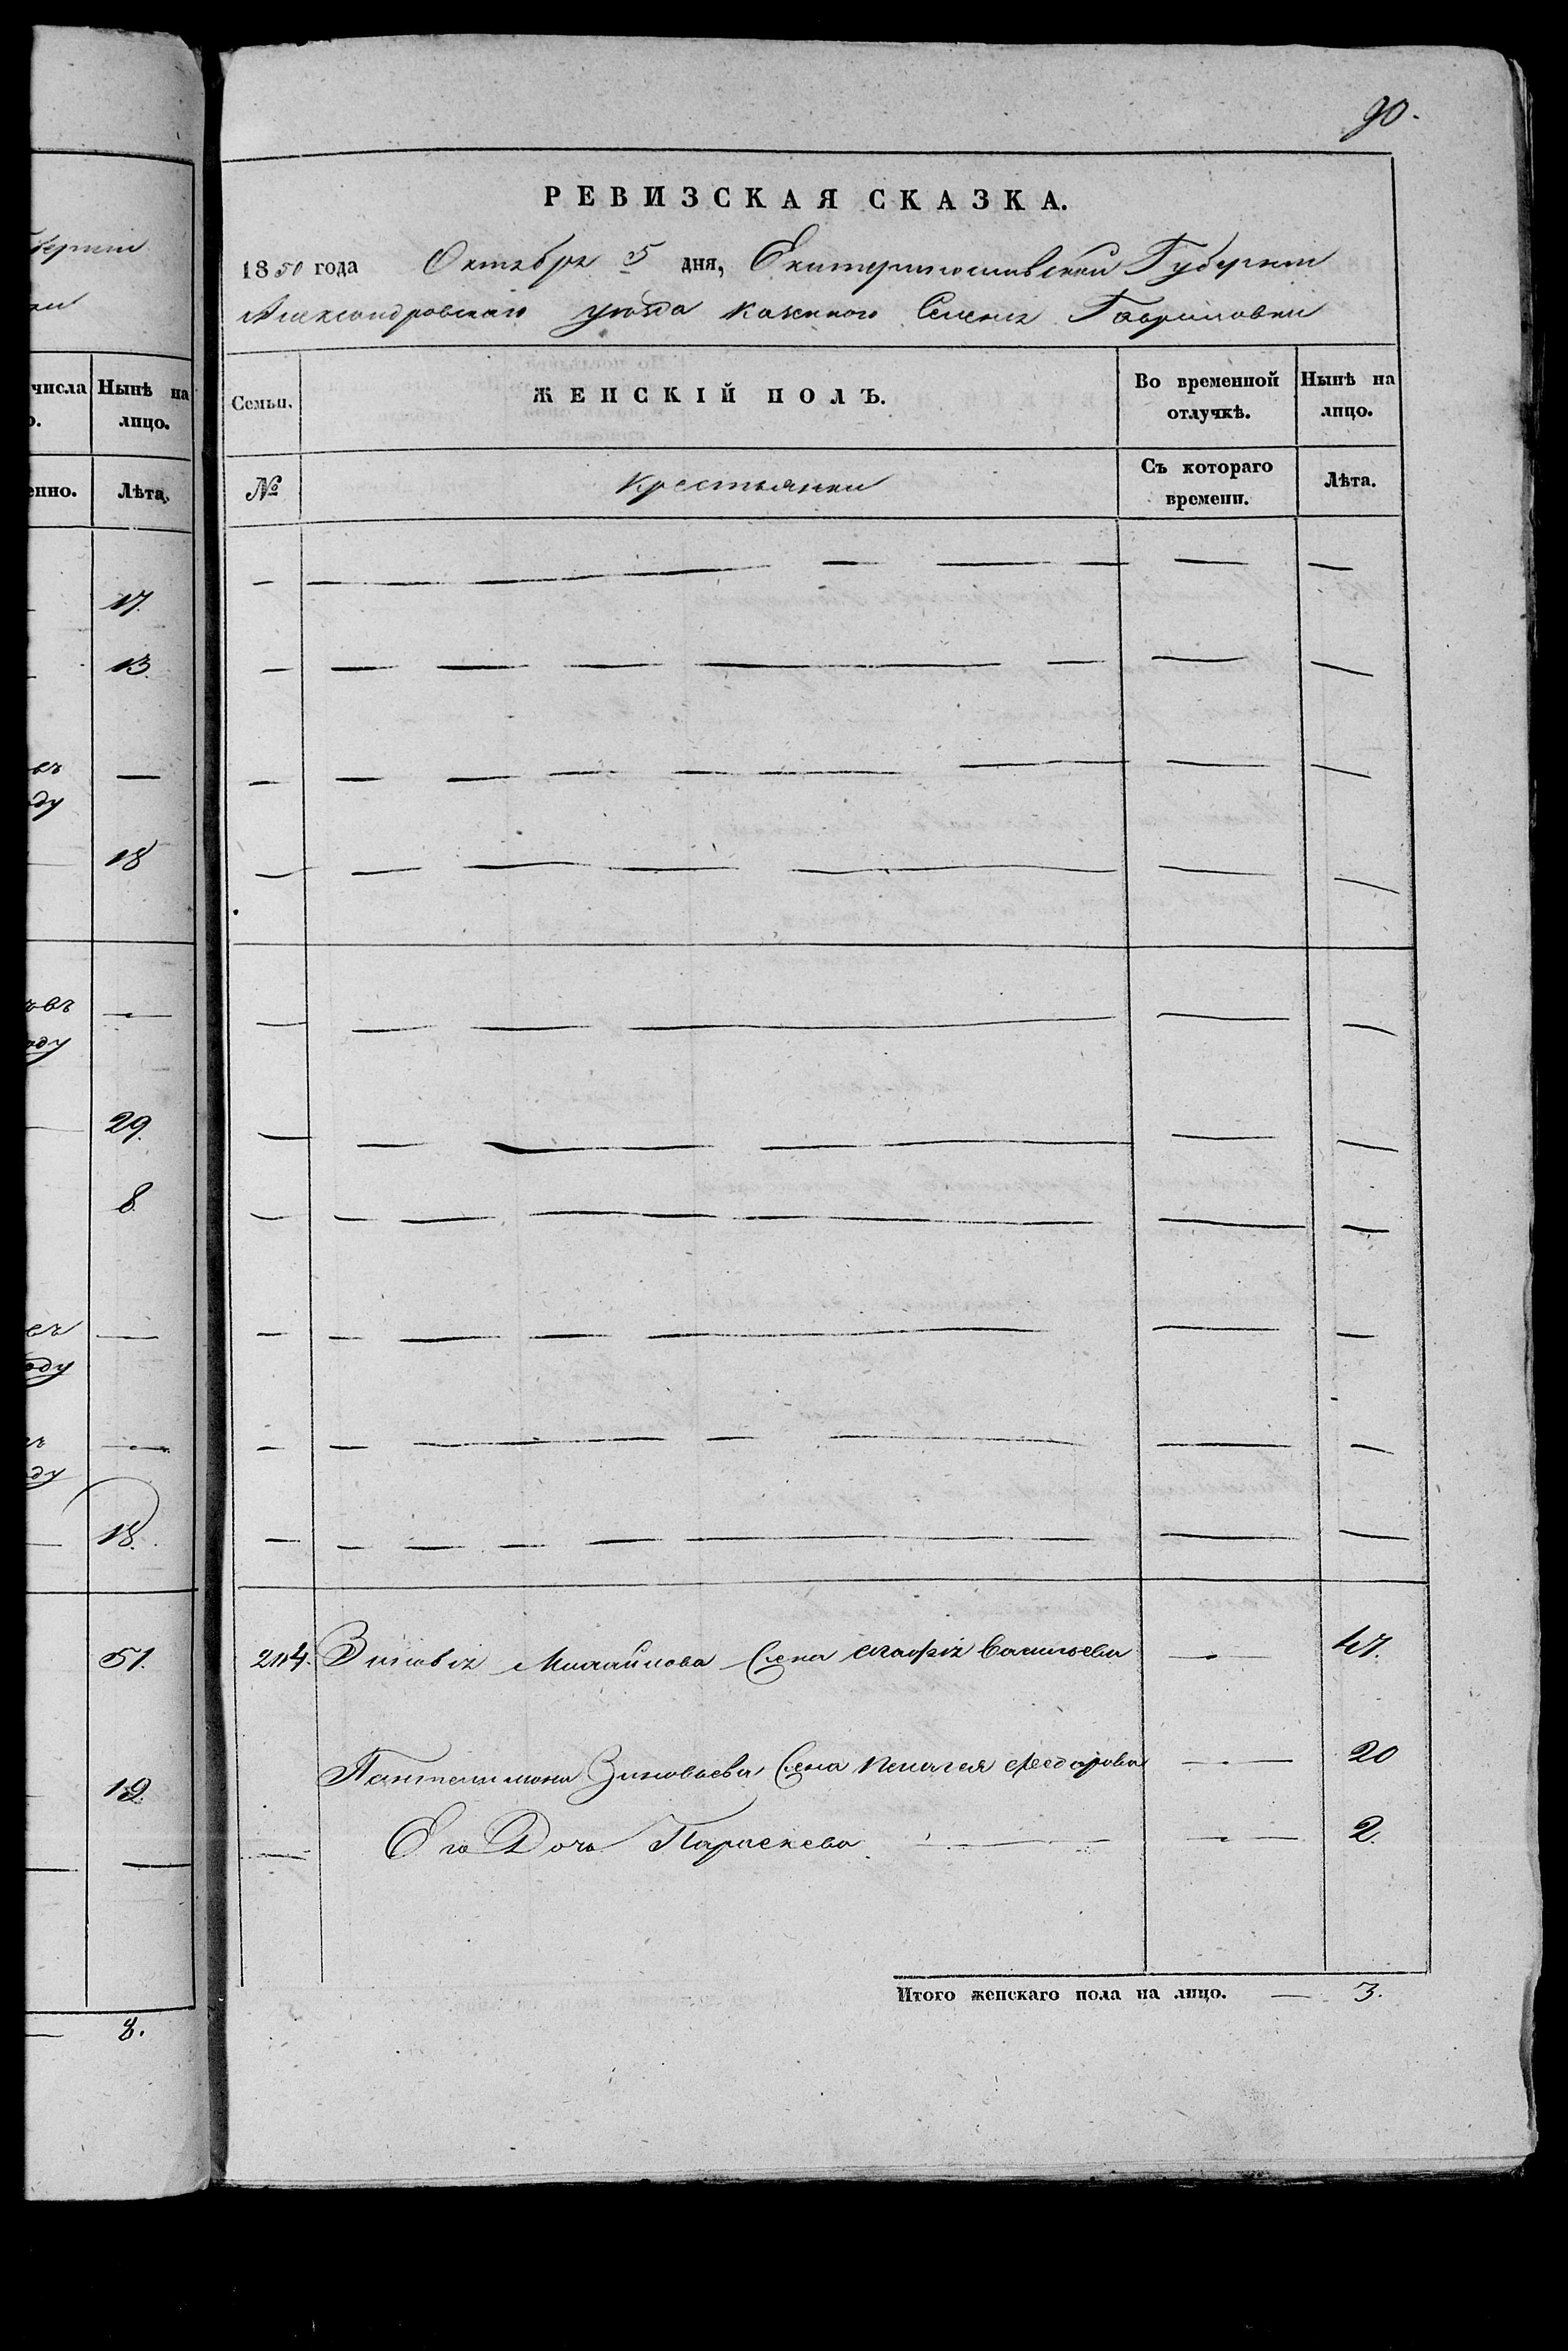 90.
РЕВИЗСКАЯ СКАЗКА.
1850 года Октября 5 дня, Екатеринославской Губернии
Александровскаго уезда казенного Селения Гавриловки
числа Нынѣ на лицо.
енно. Лѣта.
Семьи. ЖЕНСКІЙ ПОЛЪ. Во временной отлучкѣ. Нынѣ на лицо.
№ Крестьянки Съ котораго времени. Лѣта.
17.
13.
оду
18
оду
29.
8
оду
оду
18.
51.
204. Зиновія Михайлова жена Васильева 47.
19.
Пантелимона Зиновьева жена Пелагея Федорова 20
Его Дочь Параскева 2.
Итого женскаго пола на лицо. 3.
8.